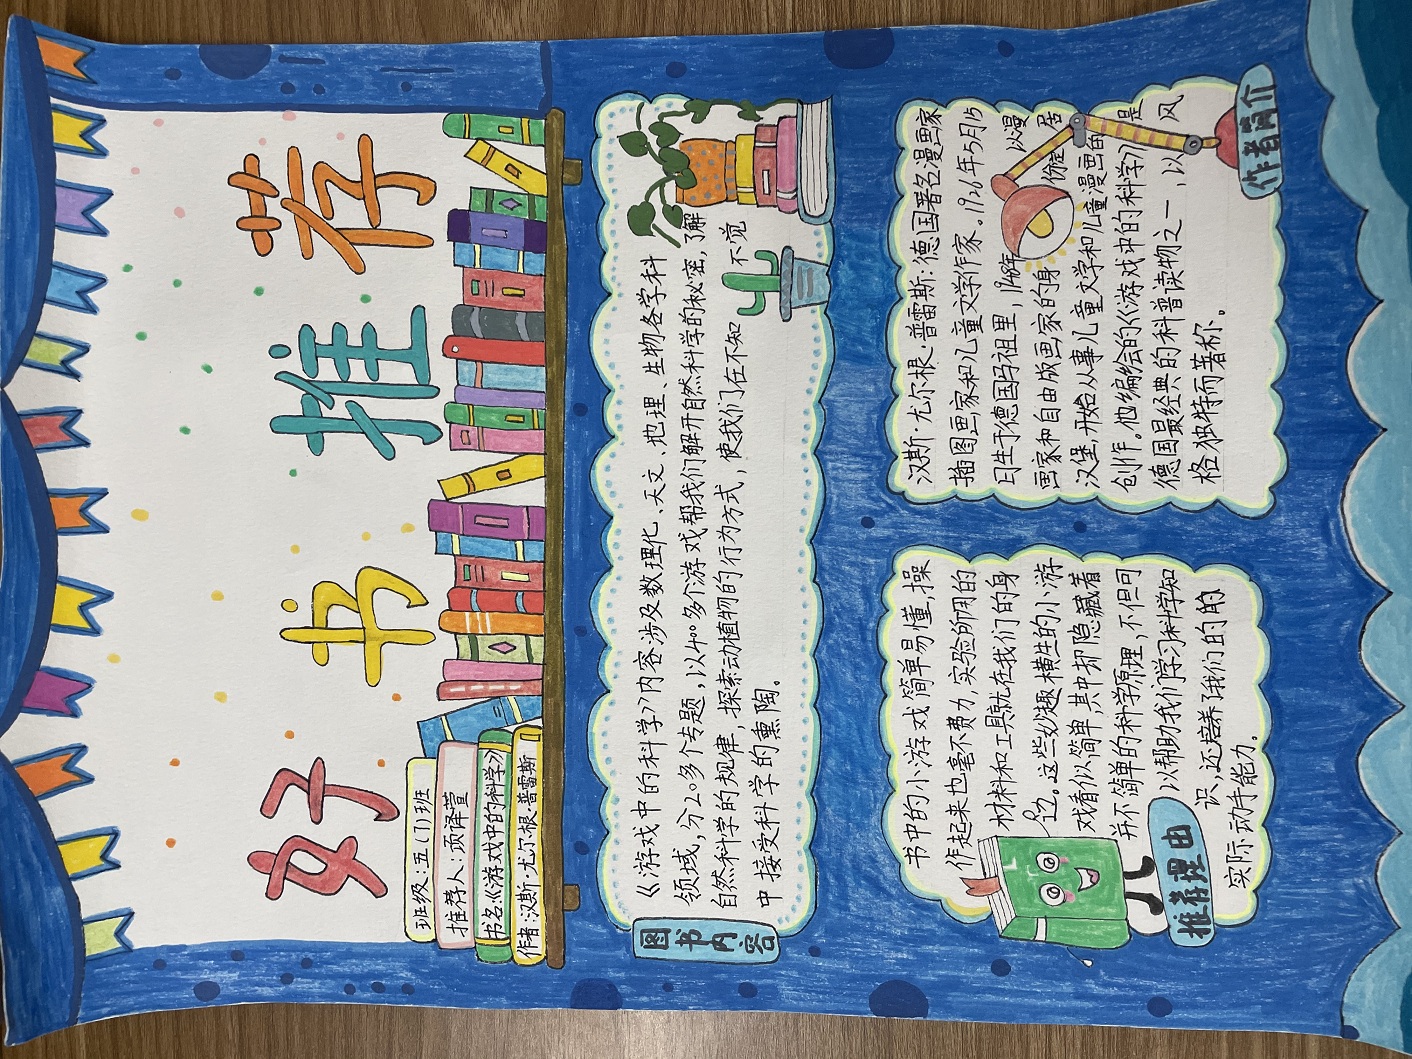 好书推荐
班级：五（1）班
推荐人：项译萱
书名：《游戏中的科学》
作者：汉斯·尤尔根·普雷斯
图书内容
《游戏中的科学》内容涉及数理化、天文、地理、生物各学科
领域，分20多个专题，以400多个游戏帮我们解开自然科学的秘密，了解
自然科学的规律，探索动植物的行为方式，使我们在不知不觉
中接受科学的熏陶。
推荐理由
书中的小游戏简单易懂，操
作起来也毫不费力，实验所用的
材料和工具就在我们的身
边。这些妙趣横生的小游
戏看似简单，其中却隐藏着
并不简单的科学原理，不但可
以帮助我们学习科学知
识，还培养了我们的的
实际动手能力。
作者简介
汉斯·尤尔根·普雷斯：德国著名漫画家
插图画家和儿童文学作家。1926年5月15
日生于德国玛祖里，1948年以漫
画家和自由版画家的身份定居
汉堡，开始从事儿童文学和儿童漫画的
创作。他编绘的《游戏中的科学》是
德国最经典的科普读物之一，以风
格独特而著称。